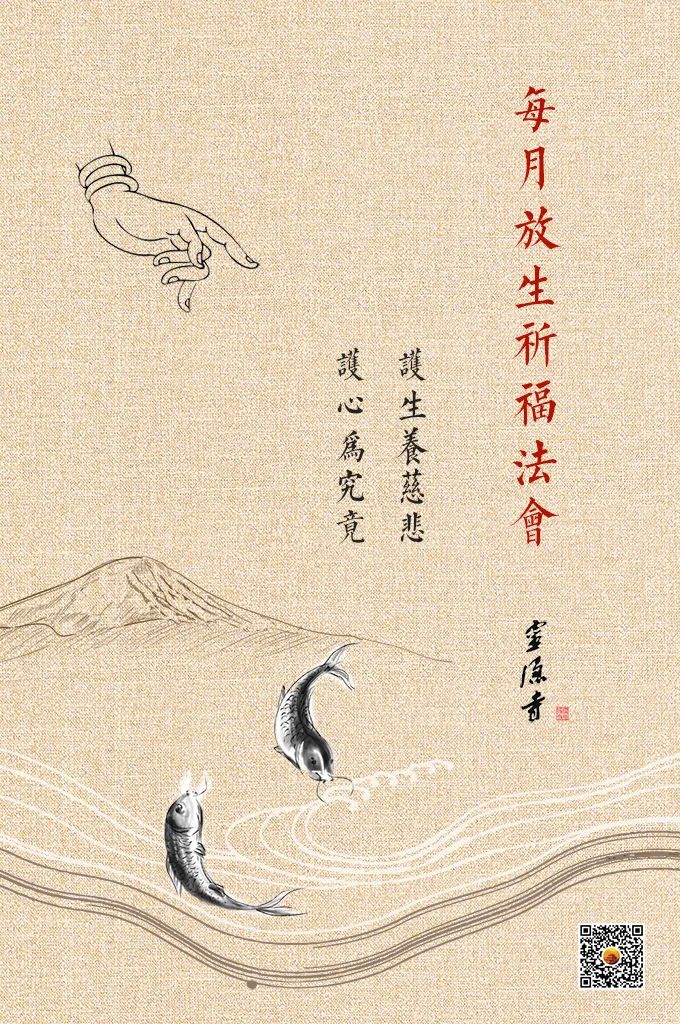 每月放生祈福法會
護生養慈悲
護心為究竟
靈源寺